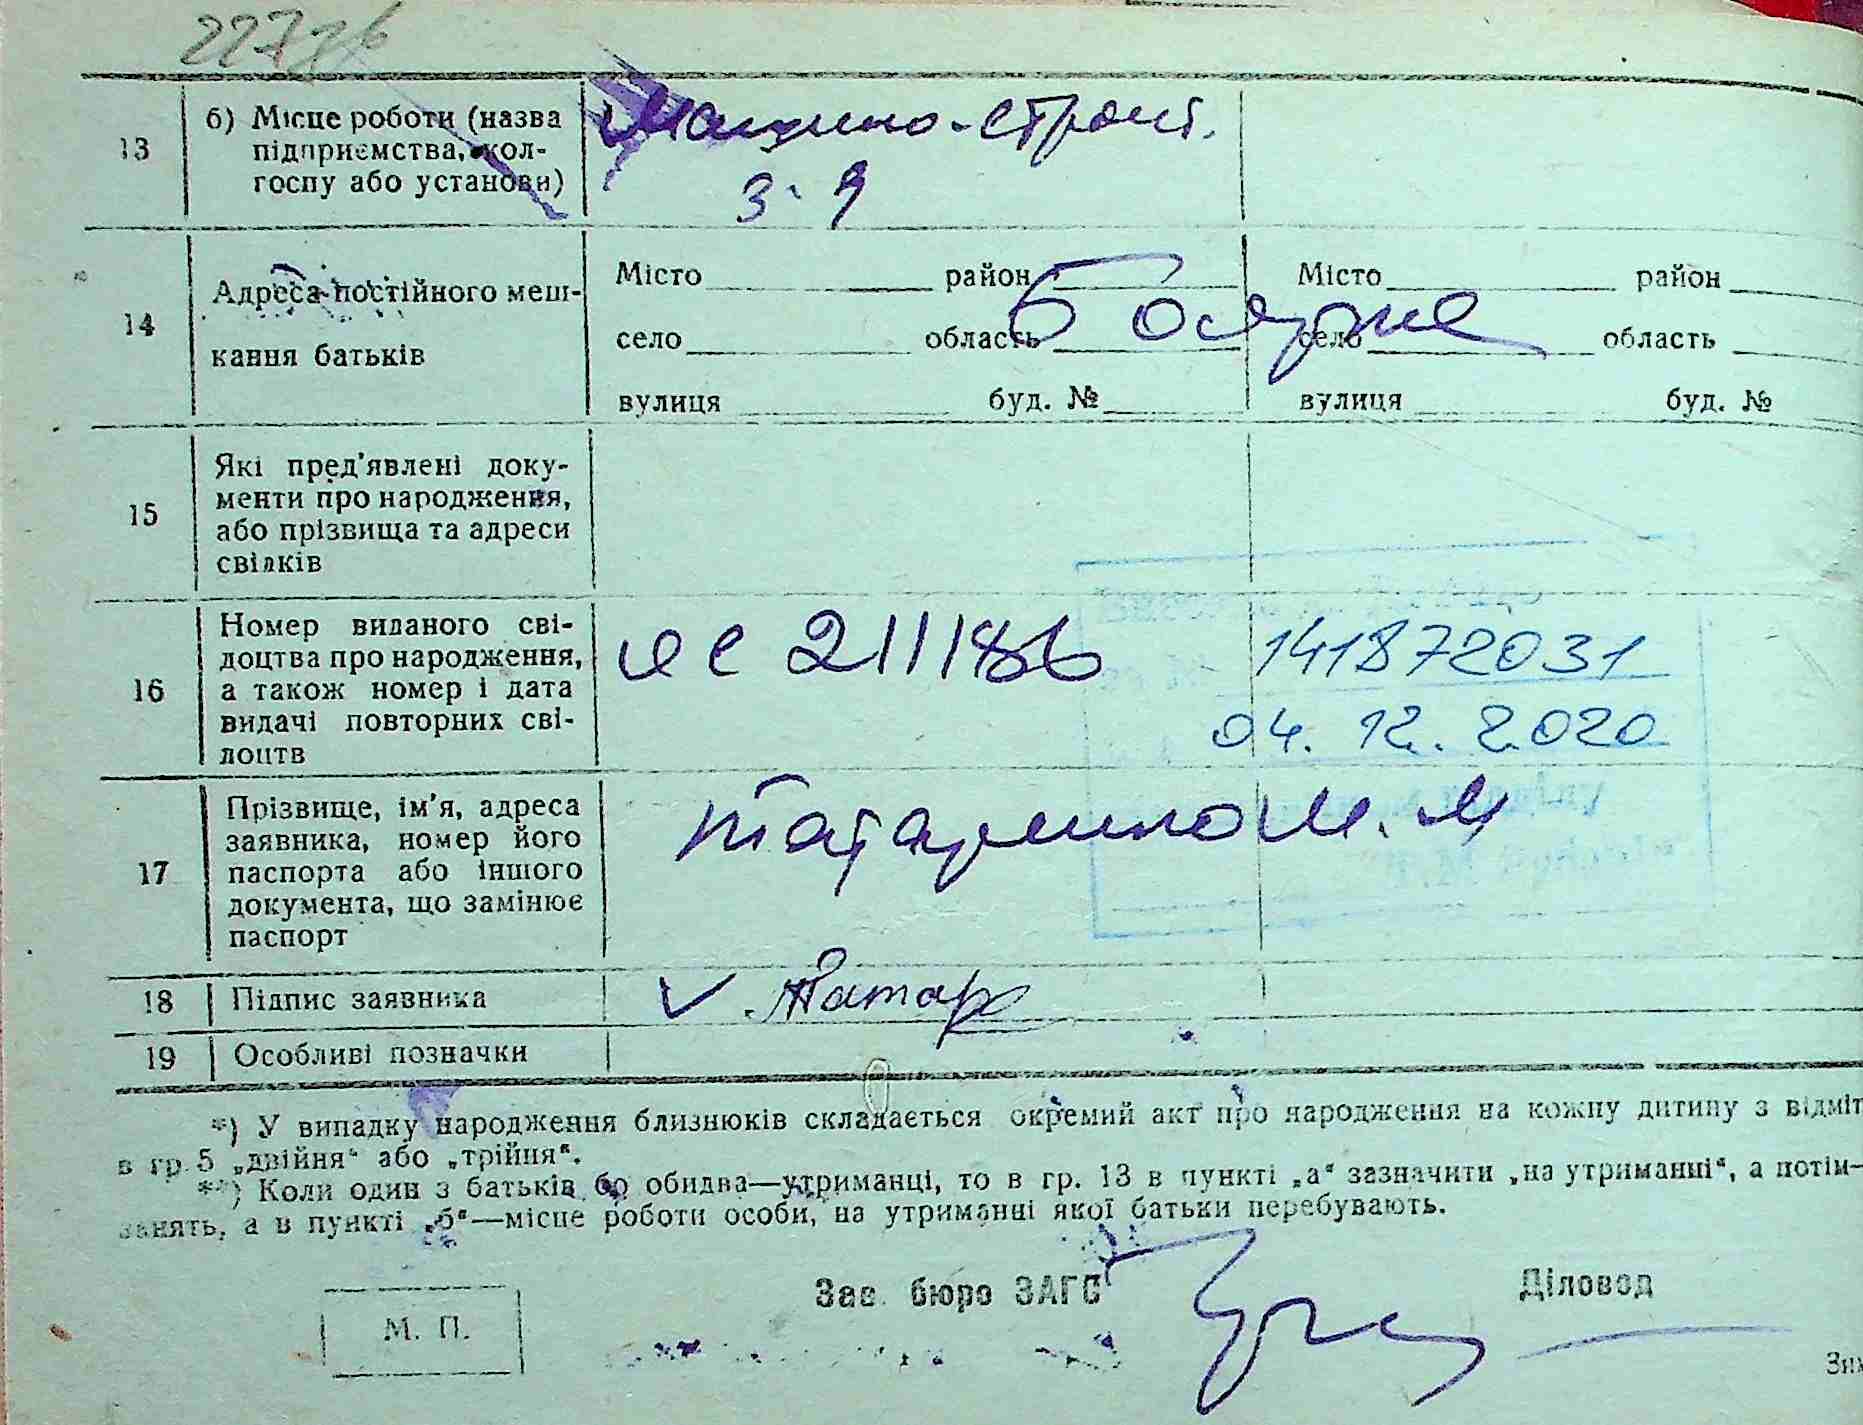 22776
13
б) Місце роботи (назва
підприємства, кол-
госпу або установи)
Машино-строит.
14
Адреса постійного меш-
кання батьків
Місто район Місто район
село область село область
вулиця буд. № вулиця буд. №
Боярка
15
Які пред’явлені доку-
менти про народження,
або прізвища та адреси
свідків
16
Номер виданого сві-
доцтва про народження,
а також номер і дата
видачі повторних сві-
доцтв
211186 141872031
04. 12. 2020
17
Прізвище, ім’я, адреса
заявника, номер його
паспорта або іншого
документа, що замінює
паспорт
18 Підпис заявника
19 Особливі позначки
*) У випадку народження близнюків складається окремий акт про народження на кожну дитину з відміт
в гр. 5 „двійня“ або „трійня“.
**) Коли один з батьків, бо обидва—утриманці, то в гр. 13 в пункті „а“ зазначити „на утриманні“, а потім—
занять, а в пункті „б“—місце роботи особи, на утриманні якої батьки перебувають.
Зав. бюро ЗАГС Діловод
М. П.